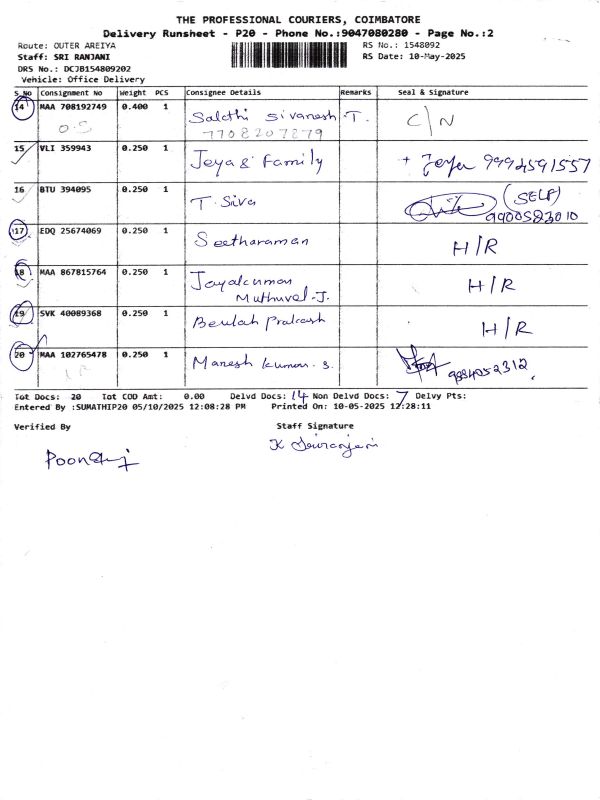 THE PROFESSIONAL COURIERS, COIMBATORE
Delivery Runsheet - P20 - Phone No.:9047080280 - Page No.:2
Route: OUTER AREIYA RS No.: 1548092
Staff: SRI RANJANI RS Date: 10-May-2025
DRS No.: DCJB154809202
Vehicle: Office Delivery
S_No Consignment No Weight PCS Consignee Details Remarks Seal & Signature
14 MAA 708192749 0.400 1 Sakthi Sivanesh .T. C/N
O.S 7708207879
15 VLI 359943 0.250 1 Jeya & Family + Jeya 9994591557
16 BTU 394095 0.250 1 T. Siva (SELF)
9900523010
17 EDQ 25674069 0.250 1 Seetharaman H/R
18 MAA 867815764 0.250 1 Jayakumar H/R
Muthuvel.J.
19 SVK 40089368 0.250 1 Beulah Prakash H/R
20 MAA 102765478 0.250 1 Manesh Kumar. S. 9884052312.
Tot Docs: 20 Tot COD Amt: 0.00 Delvd Docs: 14 Non Delvd Docs: 7 Delvy Pts:
Entered By :SUMATHIP20 05/10/2025 12:08:28 PM Printed On: 10-05-2025 12:28:11
Verified By Staff Signature